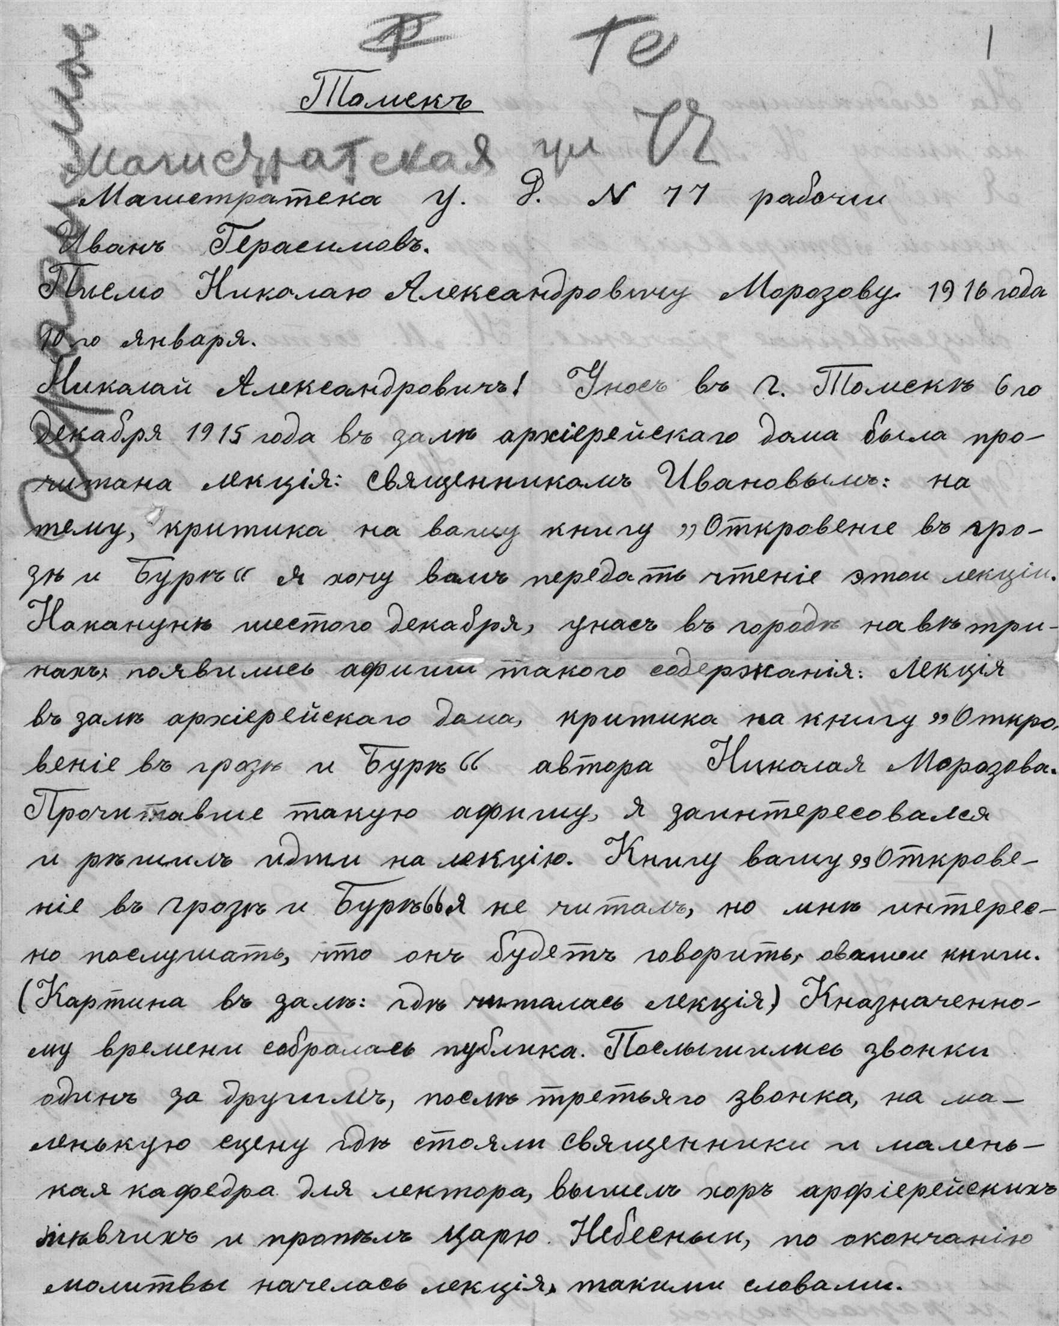 Те
1
Томскъ
Магистратская ул
Магистратска у. Д. N 77 рабочи
Иванъ Герасимовъ.
Писмо Николаю Александровичу Морозову 1916 года
10 го января.
Николай Александровичъ! Унасъ въ г. Томскѣ 6 го
декабря 1915 года въ залѣ архіерейскаго дома была про-
читана лекція: священникамъ Ивановымъ: на
тему, критика на вашу книгу „Откровеніе въ гро-
зѣ и Бурѣ“ я хочу вамъ передать чтеніе этои лекціи.
Наканунѣ шестого декабря, унасъ въ городѣ на вѣтри-
нахъ, появились афиши такого содержанія: Лекція
въ залѣ архіерейскаго дома, критика на книгу „Откро-
веніе въ грозѣ и Бурѣ“ автора Николая Морозова.
Прочитавше такую афишу, я заинтересовался
и рѣшилъ идти на лекцію. Книгу вашу „Открове-
ніе въ Грозѣ и Бурѣ“ я не читалъ, но мнѣ интерес-
но послушать, что онъ будетъ говорить, овашеи книги.
(Картина въ залѣ: гдѣ читалась лекція) Кназначенно-
му времени собралась публика. Послышились звонки
одинъ за другимъ, послѣ третьяго звонка, на ма-
ленькую сцену гдѣ стояли священники и малень-
кая кафедра для лектора, вышелъ хоръ арфіерейскихъ
пѣвчихъ и пропѣлъ царю Небесныи, по окончанію
молитвы началась лекція, такими словами.